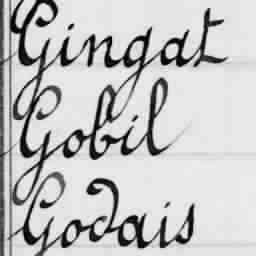 Gingat
Gobil
Godais